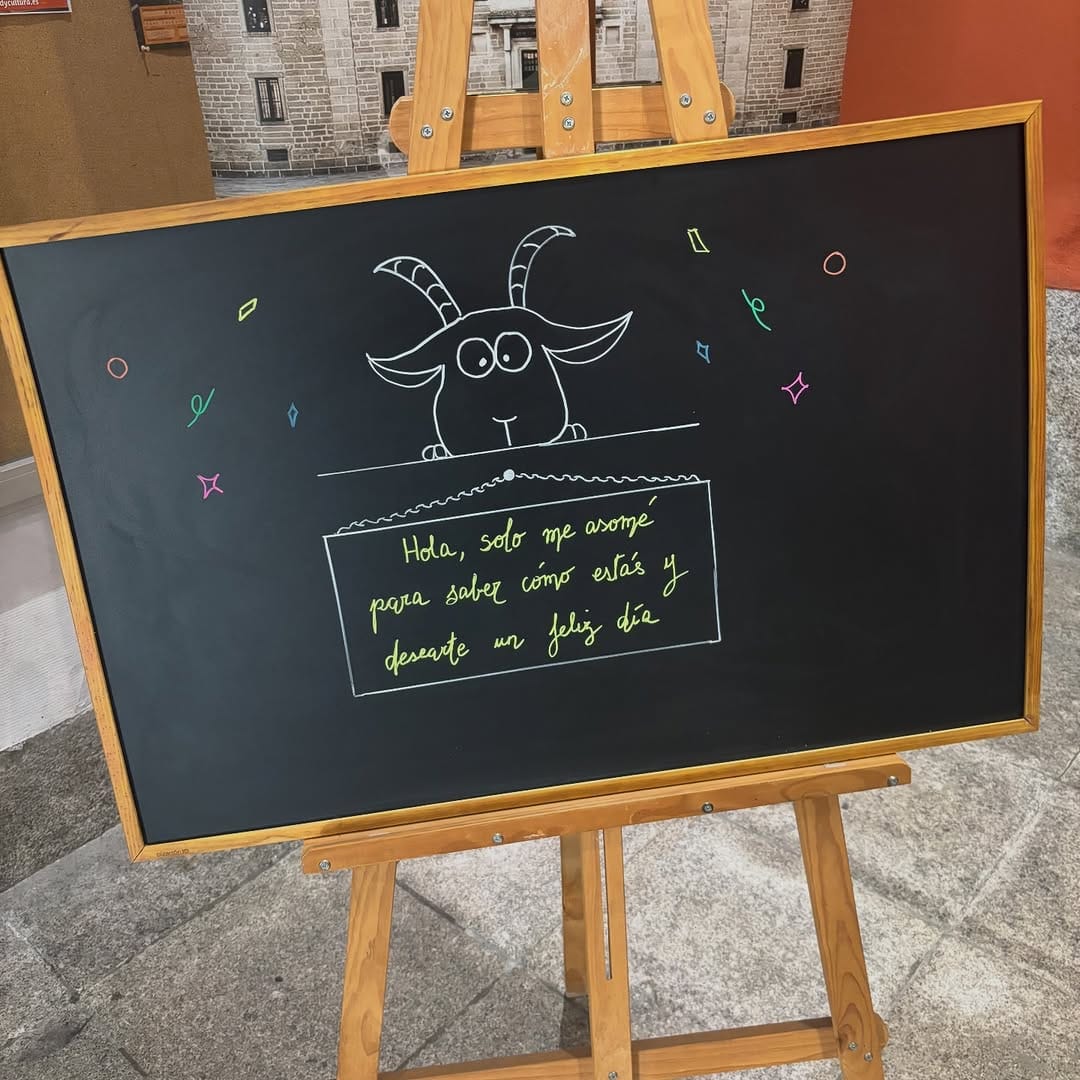 dycultura.es
Hola, solo me asomé
para saber cómo estás y
desearte un feliz día